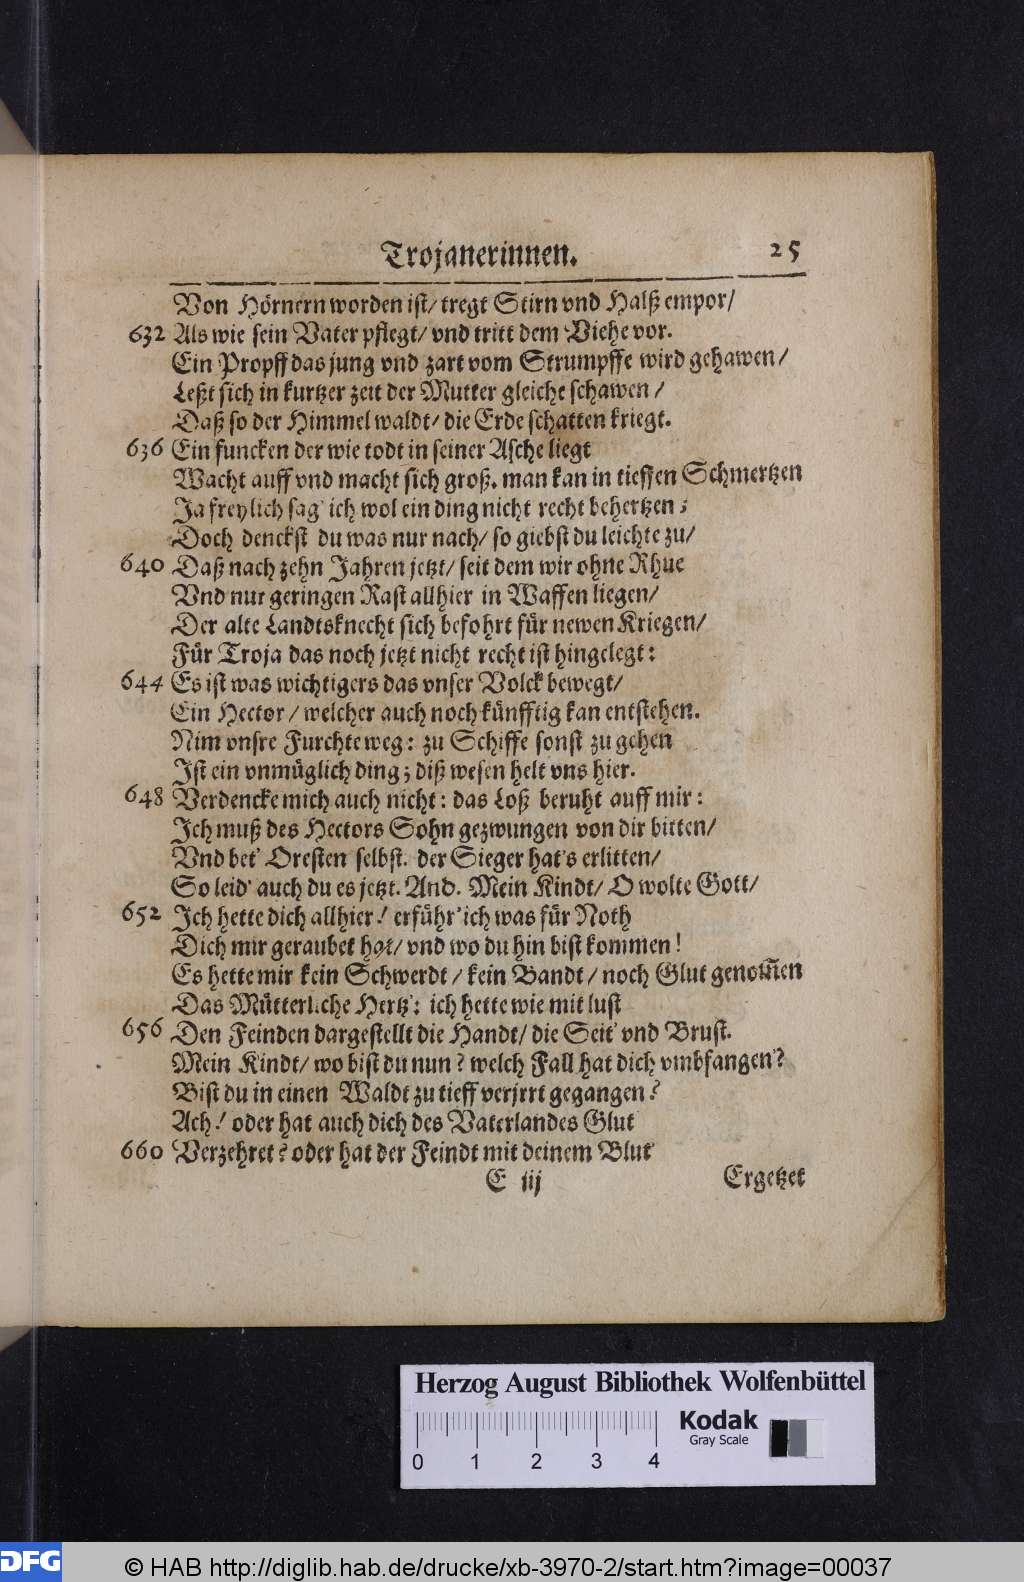 Trojanerinnen. 25
Von Hörnern worden ist/ tregt Stirn vnd Halß empor/
632 Als wie sein Vater pflegt/ vnd tritt dem Viehe vor.
Ein Propff das jung vnd zart vom Strumpffe wird gehawen/
Leßt sich in kurtzer zeit der Mutter gleiche schawen/
Daß so der Himmel waldt/ die Erde schatten kriegt.
636 Ein funcken der wie todt in seiner Asche liegt
Wacht auff vnd macht sich groß. man kan in tieffen Schmertzen
Ja freylich sag' ich wol ein ding nicht recht behertzen;
Doch denckst du was nur nach/ so giebst du leichte zu/
640 Daß nach zehn Jahren jetzt/ seit dem wir ohne Rhue
Vnd nur geringen Rast allhier in Waffen liegen/
Der alte Landtsknecht sich befohrt für newen Kriegen/
Für Troja das noch jetzt nicht recht ist hingelegt:
644 Es ist was wichtigers das vnser Volck bewegt/
Ein Hector/ welcher auch noch künfftig kan entstehen.
Nim vnsre Furchte weg: zu Schiffe sonst zu gehen
Ist ein vnmüglich ding; diß wesen helt vns hier.
648 Verdencke mich auch nicht: das Loß beruht auff mir:
Ich muß des Hectors Sohn gezwungen von dir bitten/
Vnd bet' Oresten selbst. der Sieger hat's erlitten/
So leid' auch du es jetzt. And. Mein Kindt/ O wolte Gott/
652 Ich hette dich allhier! erführ' ich was für Noth
Dich mir geraubet hat/ vnd wo du hin bist kommen!
Es hette mir kein Schwerdt/ kein Bandt/ noch Glut genom̃en
Das Mütterliche Hertz': ich hette wie mit lust
656 Den Feinden dargestellt die Handt/ die Seit' vnd Brust.
Mein Kindt/ wo bist du nun? welch Fall hat dich vmbfangen?
Bist du in einen Waldt zu tieff verjrrt gegangen?
Ach! oder hat auch dich des Vaterlandes Glut
660 Verzehret? oder hat der Feindt mit deinem Blut
E iij Ergetzet
Herzog August Bibliothek Wolfenbüttel
0 1 2 3 4
Kodak
Gray Scale
DFG © HAB http://diglib.hab.de/drucke/xb-3970-2/start.htm?image=00037